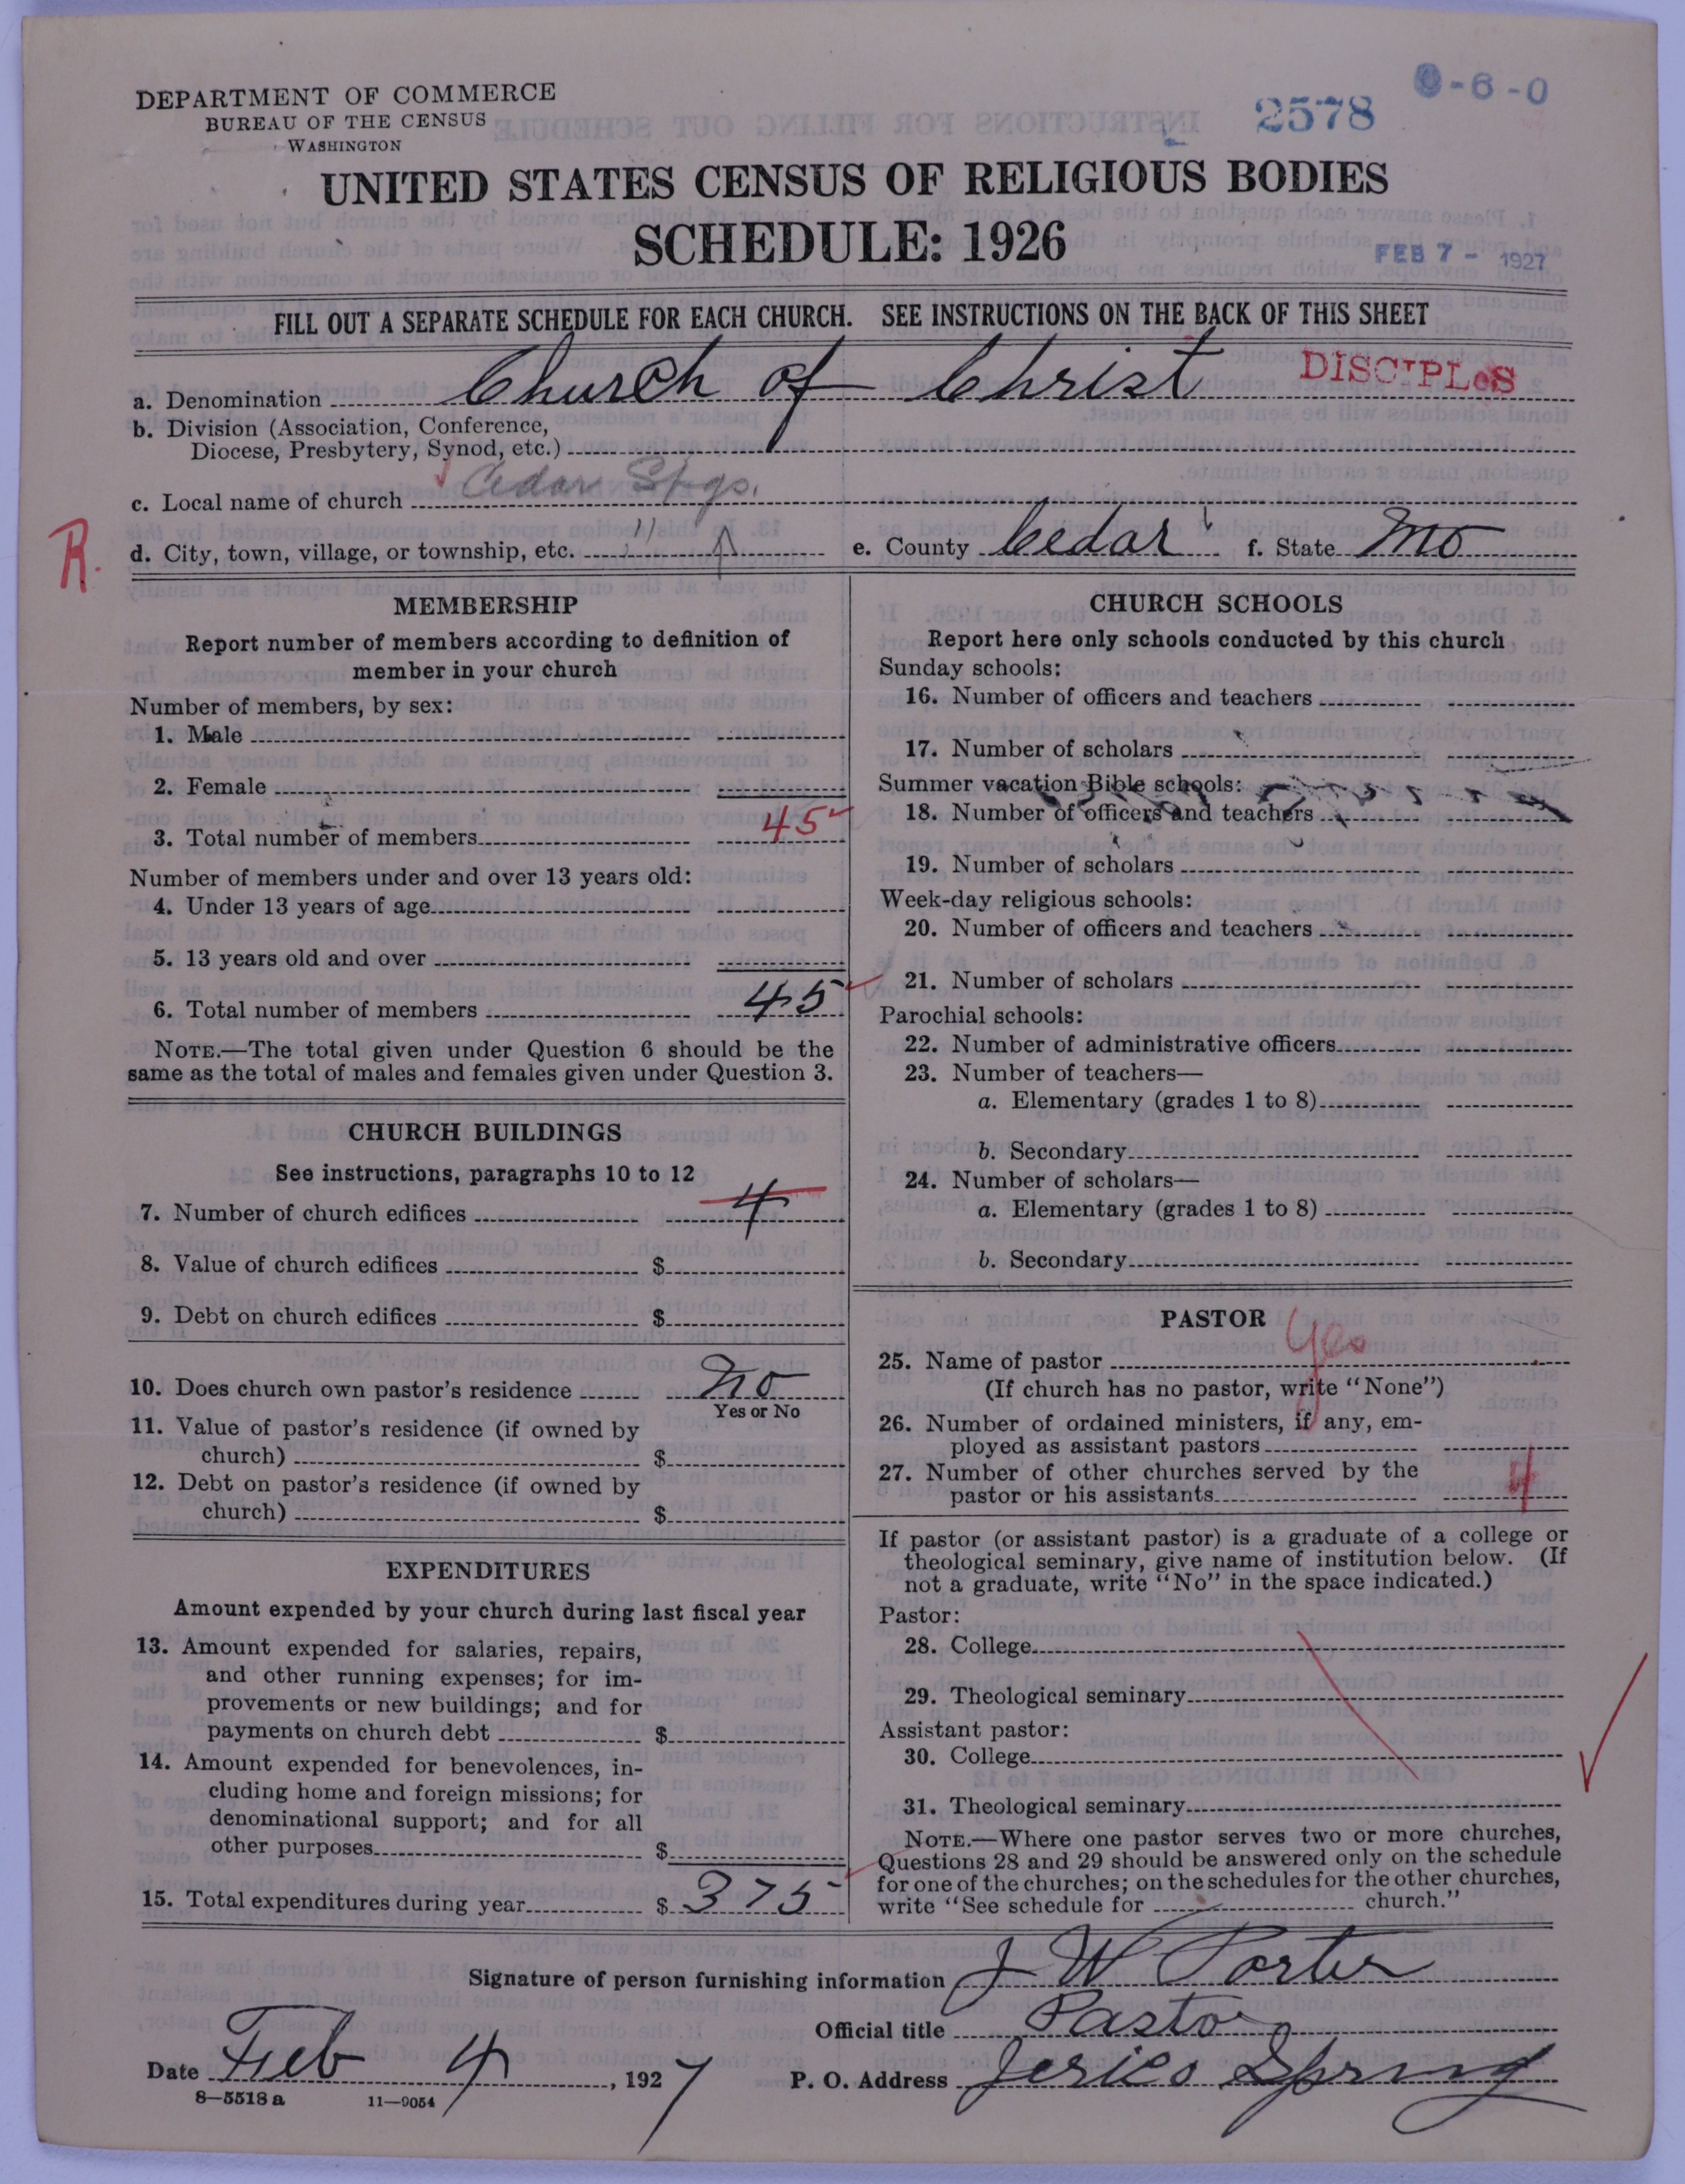 DEPARTMENT OF COMMERCE
BUREAU OF THE CENSUS
WASHINGTON
2578
0-6-0
UNITED STATES CENSUS OF RELIGIOUS BODIES
SCHEDULE: 1926
FEB 7 - 1927
FILL OUT A SEPARATE SCHEDULE FOR EACH CHURCH. SEE INSTRUCTIONS ON THE BACK OF THIS SHEET
a. Denomination Church of Christ DISCIPLES
b. Division (Association, Conference,
Diocese, Presbytery, Synod, etc.)
c. Local name of church Cedar Spgs.
R.
d. City, town, village, or township, etc. " e. County Cedar f. State Mo
MEMBERSHIP
Report number of members according to definition of
member in your church
Number of members, by sex:
1. Male
2. Female
3. Total number of members 45
Number of members under and over 13 years old:
4. Under 13 years of age
5. 13 years old and over
6. Total number of members 45
NOTE.—The total given under Question 6 should be the
same as the total of males and females given under Question 3.
CHURCH BUILDINGS
See instructions, paragraphs 10 to 12
7. Number of church edifices 4
8. Value of church edifices $
9. Debt on church edifices $
10. Does church own pastor's residence No
Yes or No
11. Value of pastor's residence (if owned by
church) $
12. Debt on pastor's residence (if owned by
church) $
EXPENDITURES
Amount expended by your church during last fiscal year
13. Amount expended for salaries, repairs,
and other running expenses; for im-
provements or new buildings; and for
payments on church debt $
14. Amount expended for benevolences, in-
cluding home and foreign missions; for
denominational support; and for all
other purposes $
15. Total expenditures during year $ 375
CHURCH SCHOOLS
Report here only schools conducted by this church
Sunday schools:
16. Number of officers and teachers
17. Number of scholars
Summer vacation Bible schools:
18. Number of officers and teachers
19. Number of scholars
Week-day religious schools:
20. Number of officers and teachers
21. Number of scholars
Parochial schools:
22. Number of administrative officers
23. Number of teachers—
a. Elementary (grades 1 to 8)
b. Secondary
24. Number of scholars—
a. Elementary (grades 1 to 8)
b. Secondary
PASTOR
25. Name of pastor Yes
(If church has no pastor, write "None")
26. Number of ordained ministers, if any, em-
ployed as assistant pastors
27. Number of other churches served by the
pastor or his assistants 4
If pastor (or assistant pastor) is a graduate of a college or
theological seminary, give name of institution below. (If
not a graduate, write "No" in the space indicated.)
Pastor:
28. College
29. Theological seminary
Assistant pastor:
30. College
31. Theological seminary
NOTE.—Where one pastor serves two or more churches,
Questions 28 and 29 should be answered only on the schedule
for one of the churches; on the schedules for the other churches,
write "See schedule for church."
Signature of person furnishing information J W Porter
Official title Pastor
Date Feb 4, 1927 P. O. Address Jerico Spring
8—5518 a 11—9054